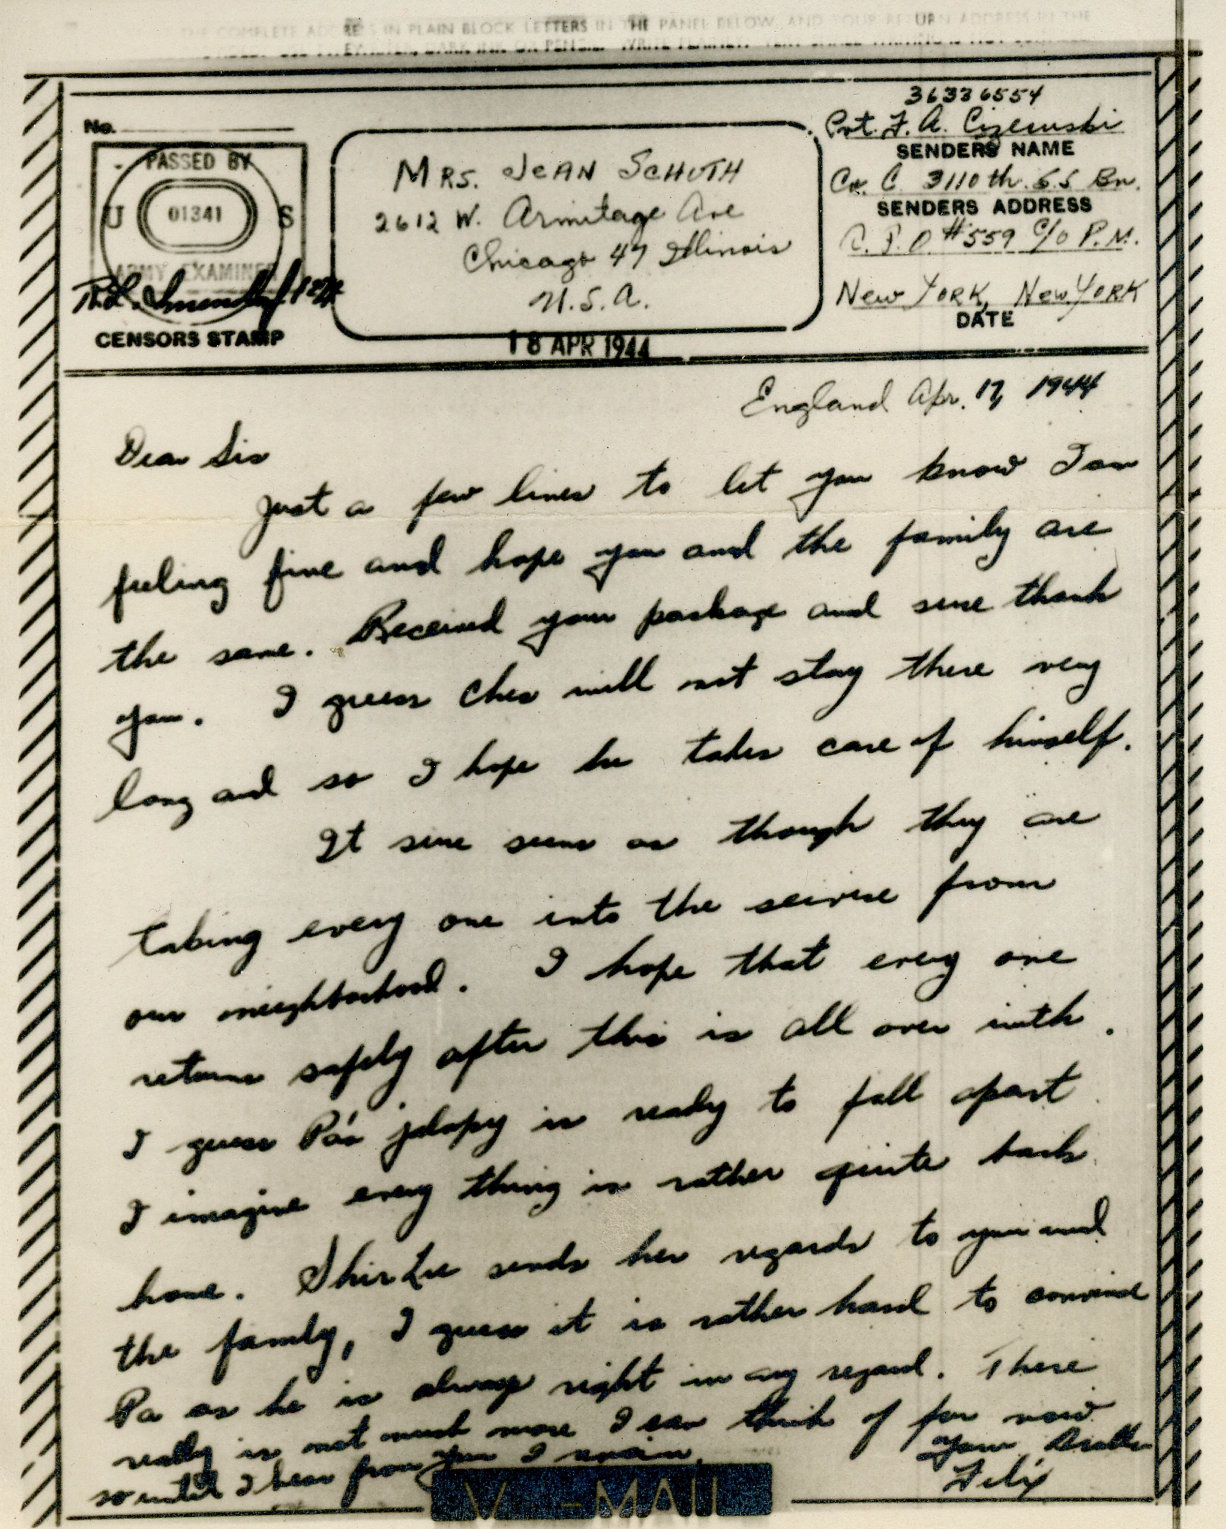 THE COMPLETE ADDRESS IN PLAIN BLOCK LETTERS IN THE PANEL BELOW, AND YOUR RETURN ADDRESS IN THE
No.
PASSED BY
U 01341 S
ARMY EXAMINER
CENSORS STAMP
MRS. JEAN SCHUTH
2612 W. Armitage Ave
Chicago 47 Illinois
U.S.A.
18 APR 1944
36336554
Pvt. F. A. Cizewski
SENDERS NAME
Co. C. 3110th. S.S Bn.
SENDERS ADDRESS
A.P.O #559 C/O P.M.
New York, New York
DATE
England Apr. 17, 1944
Dear Sis
Just a few lines to let you know I am
feeling fine and hope you and the family are
the same. Received your package and sure thank
you. I guess Ches will not stay there very
long and so I hope he takes care of himself.
It sure seems as though they are
taking every one into the service from
our neighborhood. I hope that every one
returns safely after this is all over with.
I guess Pa's jalopy is ready to fall apart
I imagine every thing is rather quite back
home. Shir Lee sends her regards to you and
the family, I guess it is rather hard to convince
Pa as he is always right in any regard. There
really is not much more I can think of for now
so until I hear from you I remain,
Your Brother
Felix
V-MAIL